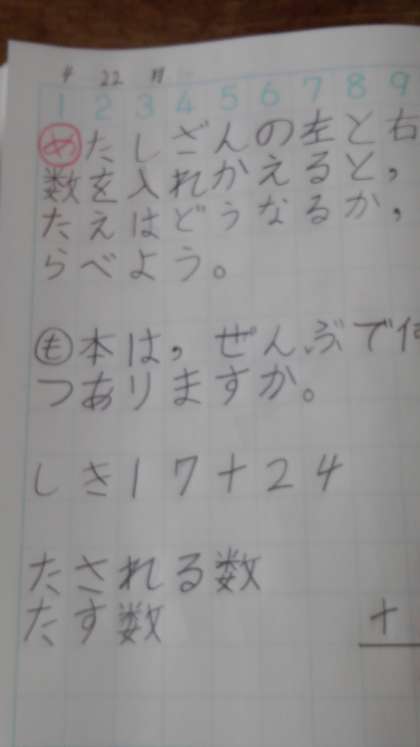 4 22 月
1 2 3 4 5 6 7 8 9
め たしざんの左と右
数を入れかえると,
たえはどうなるか,
らべよう。
も 本は,ぜんぶで何
つありますか。
しき17+24
たされる数
たす数
+